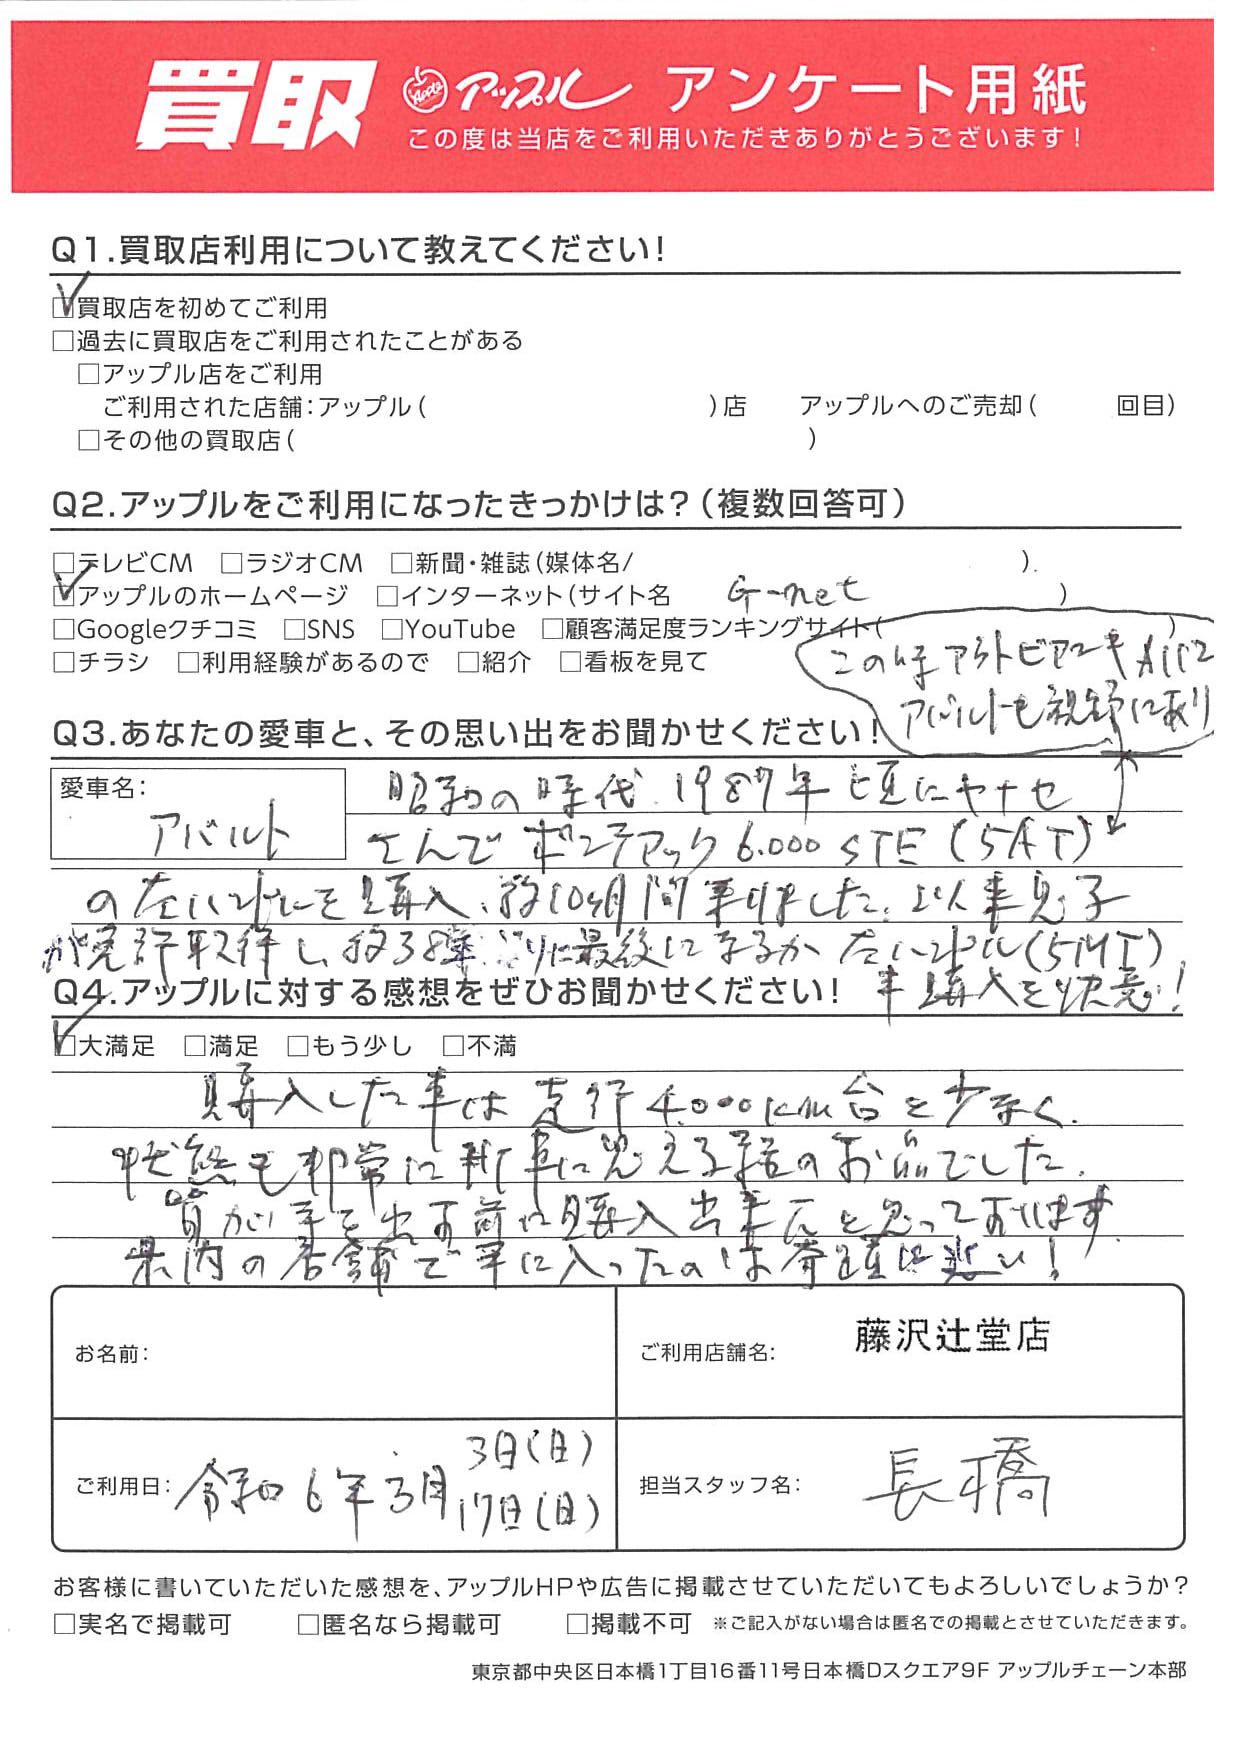 買取 Apple アップル アンケート用紙
この度は当店をご利用いただきありがとうございます!
Q1.買取店利用について教えてください!
☑買取店を初めてご利用
□過去に買取店をご利用されたことがある
□アップル店をご利用
ご利用された店舗:アップル( )店 アップルへのご売却( 回目)
□その他の買取店( )
Q2.アップルをご利用になったきっかけは?(複数回答可)
□テレビCM □ラジオCM □新聞・雑誌(媒体名/ )
☑アップルのホームページ □インターネット(サイト名 G-net )
□Googleクチコミ □SNS □YouTube □顧客満足度ランキングサイト( )
□チラシ □利用経験があるので □紹介 □看板を見て
この時アウトビアンキA112
アバルトも視野にあり
Q3.あなたの愛車と、その思い出をお聞かせください!
愛車名:
アバルト
昭和の時代 1987年頃にヤナセ
さんでポンテアック6.000STE(5AT)
の左ハンドルを購入、約10ヶ月間乗りました。以来息子
が免許取得し、約38年ぶりに最後になるか左ハンドル(5MT)
車購入を決意!
Q4.アップルに対する感想をぜひお聞かせください!
☑大満足 □満足 □もう少し □不満
購入した車は走行4.000km台と少なく、
状態も非常に新車に思える程のお品でした。
皆が手を出す前に購入出来たと思っております。
県内の店舗で手に入ったのは奇蹟に近い!
お名前:
ご利用店舗名: 藤沢辻堂店
ご利用日: 令和6年3月 3日(日)
17日(日)
担当スタッフ名: 長橋
お客様に書いていただいた感想を、アップルHPや広告に掲載させていただいてもよろしいでしょうか?
□実名で掲載可 □匿名なら掲載可 □掲載不可 ※ご記入がない場合は匿名での掲載とさせていただきます。
東京都中央区日本橋1丁目16番11号日本橋Dスクエア9F アップルチェーン本部